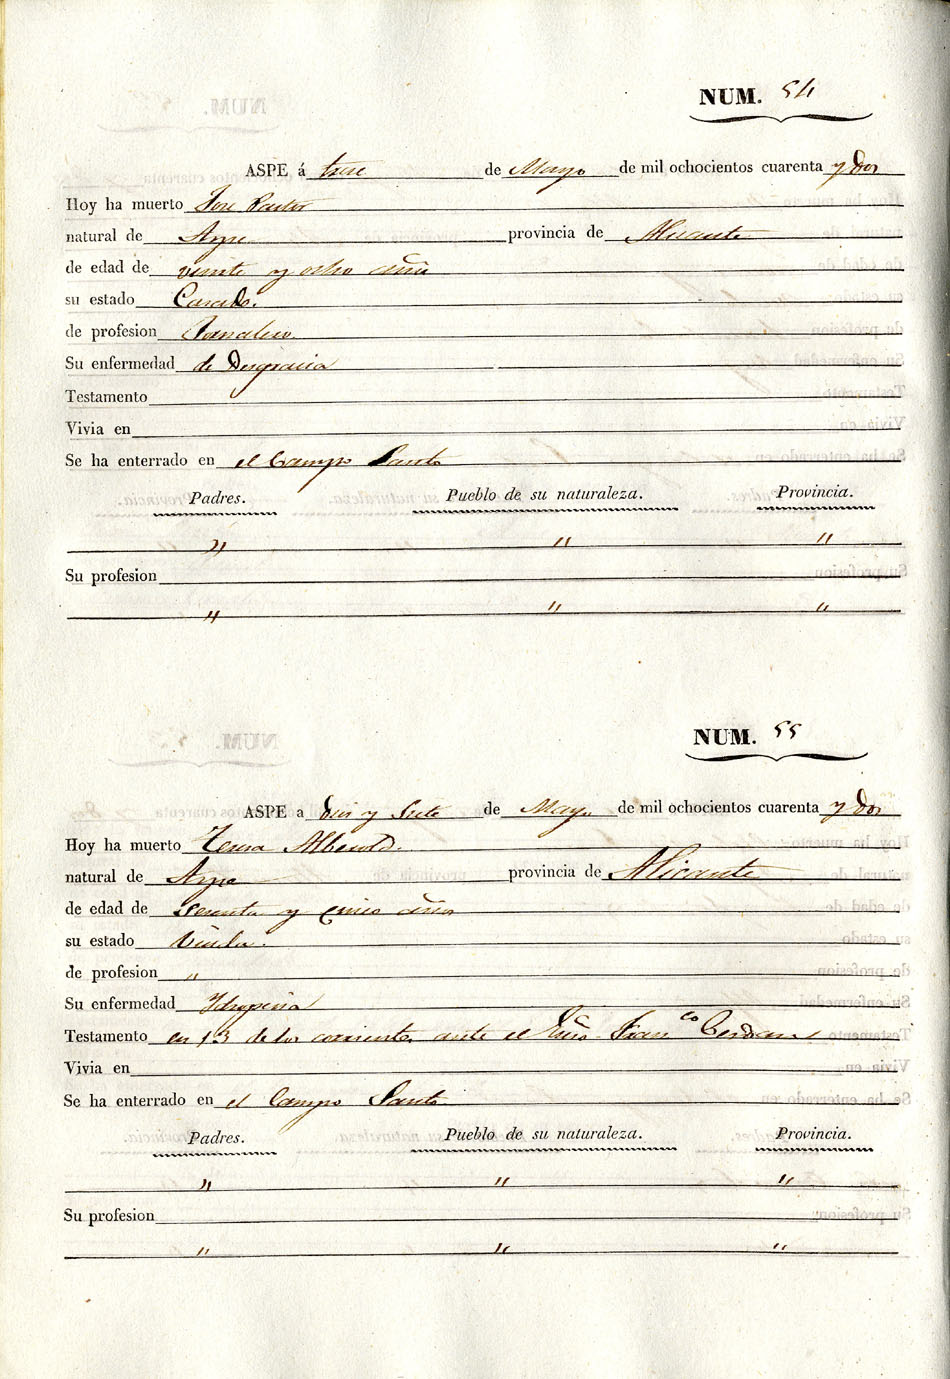 NUM. 54
ASPE á trece de Mayo de mil ochocientos cuarenta y dos
Hoy ha muerto Jose Pastor
natural de Aspe provincia de Alicante
de edad de veinte y ocho años
su estado Casado.
de profesion Jornalero.
Su enfermedad de Desgracia
Testamento
Vivia en
Se ha enterrado en el Campo Santo
Padres. Pueblo de su naturaleza. Provincia.
" " "
Su profesion
" " "
NUM. 55
ASPE a dies y siete de Mayo de mil ochocientos cuarenta y dos
Hoy ha muerto Teresa Alberola.
natural de Aspe provincia de Alicante
de edad de sesenta y cinco años
su estado Viuda.
de profesion "
Su enfermedad Idropesia
Testamento en 13 de los corrientes ante el Esno Franco Cerdan
Vivia en
Se ha enterrado en el Campo Santo
Padres. Pueblo de su naturaleza. Provincia.
" " "
Su profesion
" " "